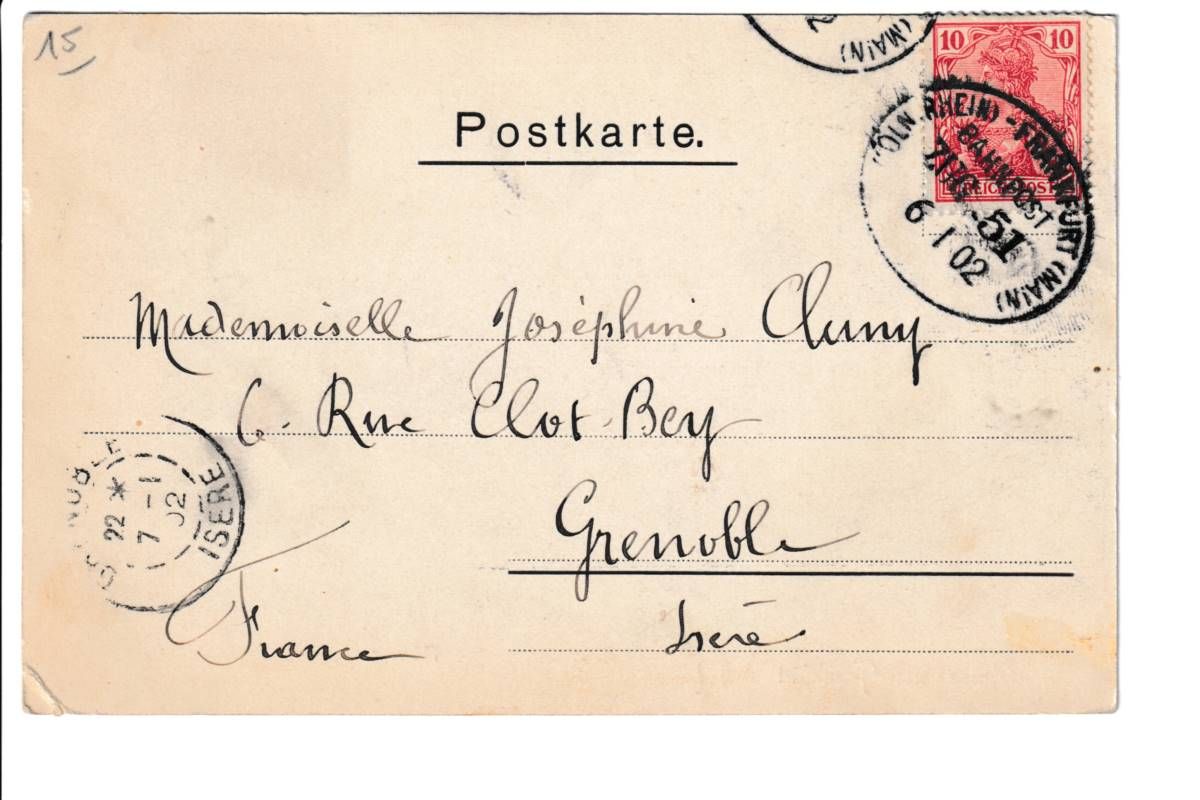 15
2
(MAIN)
10 10
REICHSPOST
KÖLN (RHEIN) - FRANKFURT (MAIN)
BAHNPOST
ZUG 51
6 1 02
Postkarte.
Mademoiselle Joséphine Cluny
6. Rue Clot-Bey
Grenoble
Isère
France
GRENOBLE
22 *
7 -1
02
ISÈRE